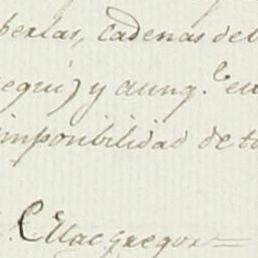 perlas, cadenas del
equi) y aunq.e en
imposibilidad de to
MacGregor